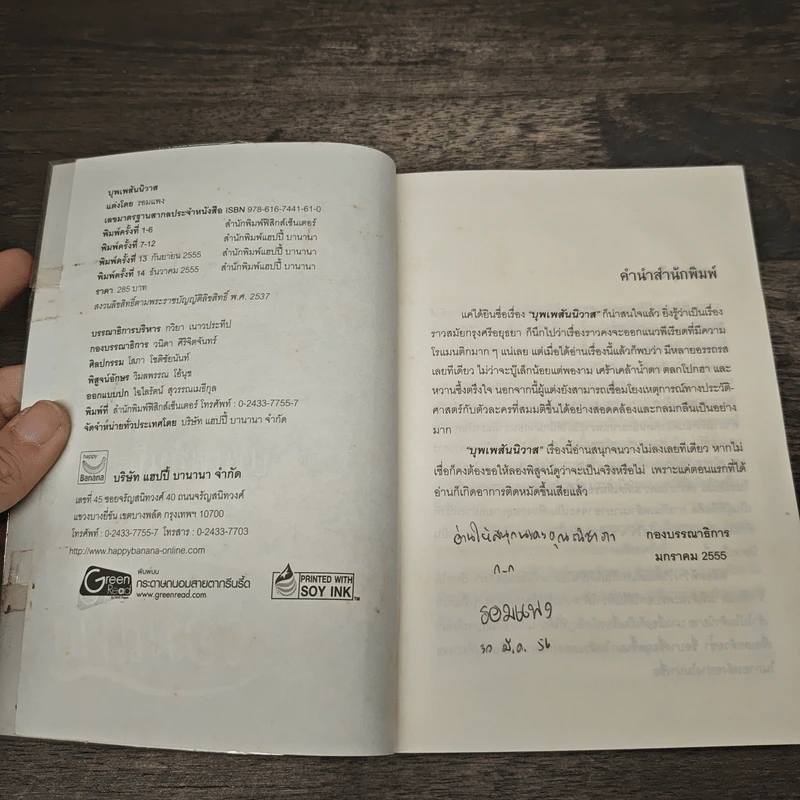 บุพเพสันนิวาส
แต่งโดย รอมแพง
เลขมาตรฐานสากลประจำหนังสือ ISBN 978-616-7441-61-0
พิมพ์ครั้งที่ 1-6 สำนักพิมพ์ฟิสิกส์เซ็นเตอร์
พิมพ์ครั้งที่ 7-12 สำนักพิมพ์แฮปปี้ บานานา
พิมพ์ครั้งที่ 13 กันยายน 2555 สำนักพิมพ์แฮปปี้ บานานา
พิมพ์ครั้งที่ 14 ธันวาคม 2555 สำนักพิมพ์แฮปปี้ บานานา
ราคา 285 บาท
สงวนลิขสิทธิ์ตามพระราชบัญญัติลิขสิทธิ์ พ.ศ. 2537
บรรณาธิการบริหาร กวิยา เนาวประทีป
กองบรรณาธิการ วนิดา ศิริจิตจันทร์
ศิลปกรรม โสภา โชติชัยนันท์
พิสูจน์อักษร วิมลพรรณ โอ้นุช
ออกแบบปก ไฉไลรัตน์ สุวรรณเมธีกุล
พิมพ์ที่ สำนักพิมพ์ฟิสิกส์เซ็นเตอร์ โทรศัพท์ : 0-2433-7755-7
จัดจำหน่ายทั่วประเทศโดย บริษัท แฮปปี้ บานานา จำกัด
happy
Banana
บริษัท แฮปปี้ บานานา จำกัด
เลขที่ 45 ซอยจรัญสนิทวงศ์ 40 ถนนจรัญสนิทวงศ์
แขวงบางยี่ขัน เขตบางพลัด กรุงเทพฯ 10700
โทรศัพท์ : 0-2433-7755-7 โทรสาร : 0-2433-7703
http://www.happybanana-online.com
Green
Read
พิมพ์บน
กระดาษถนอมสายตากรีนรี้ด
www.greenread.com
PRINTED WITH
SOY INK™
คำนำสำนักพิมพ์
แค่ได้ยินชื่อเรื่อง "บุพเพสันนิวาส" ก็น่าสนใจแล้ว ยิ่งรู้ว่าเป็นเรื่อง
ราวสมัยกรุงศรีอยุธยา ก็นึกไปว่าเรื่องราวคงจะออกแนวพีเรียดที่มีความ
โรแมนติกมาก ๆ แน่เลย แต่เมื่อได้อ่านเรื่องนี้แล้วก็พบว่า มีหลายอรรถรส
เลยทีเดียว ไม่ว่าจะบู๊เล็กน้อยแต่พองาม เศร้าเคล้าน้ำตา ตลกโปกฮา และ
หวานซึ้งตรึงใจ นอกจากนี้ผู้แต่งยังสามารถเชื่อมโยงเหตุการณ์ทางประวัติ-
ศาสตร์กับตัวละครที่สมมติขึ้นได้อย่างสอดคล้องและกลมกลืนเป็นอย่าง
มาก
"บุพเพสันนิวาส" เรื่องนี้อ่านสนุกจนวางไม่ลงเลยทีเดียว หากไม่
เชื่อก็คงต้องขอให้ลองพิสูจน์ดูว่าจะเป็นจริงหรือไม่ เพราะแค่ตอนแรกที่ได้
อ่านก็เกิดอาการติดหมัดขึ้นเสียแล้ว
กองบรรณาธิการ
มกราคม 2555
อ่านให้สนุกนะคะคุณ
ก-ก
รอมแพง
30 มี.ค. 56